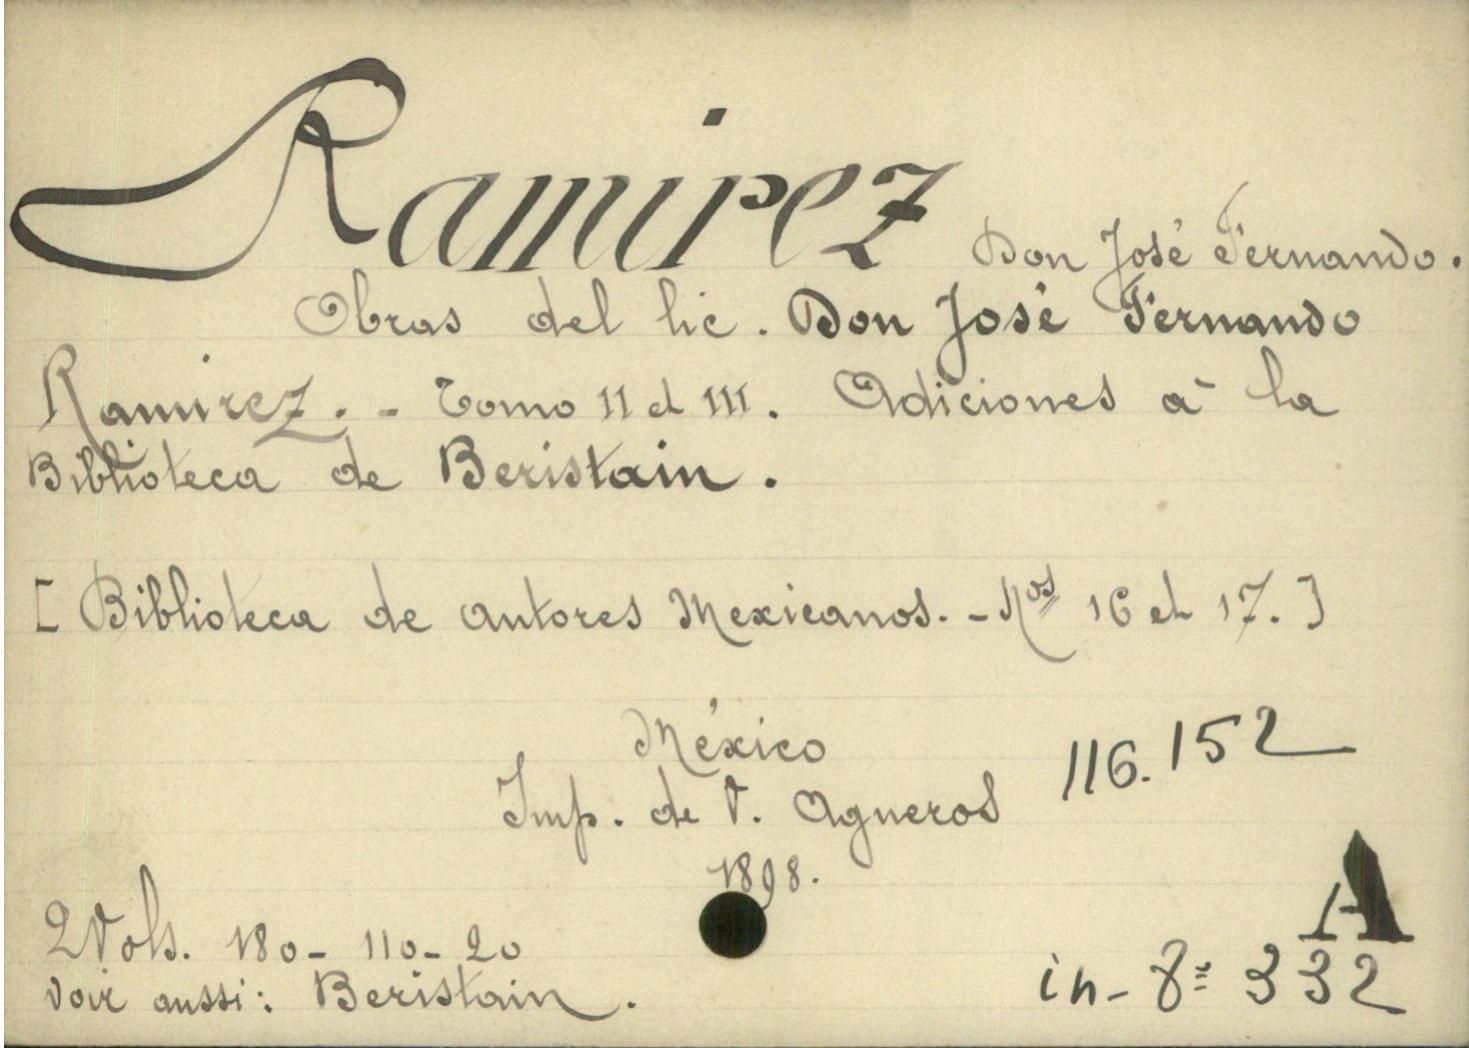 Ramirez Don José Fernando.
Obras del lic. Don José Fernando
Ramirez. - Tomo II et III. Adiciones á la
Biblioteca de Beristain.
[Biblioteca de autores Mexicanos. - Nos 16 et 17.]
México
116.152
Imp. de V. Agueros
1898.
A
2 Vols. 180 - 110 - 20
in - 8º 332
Voir aussi: Beristain.